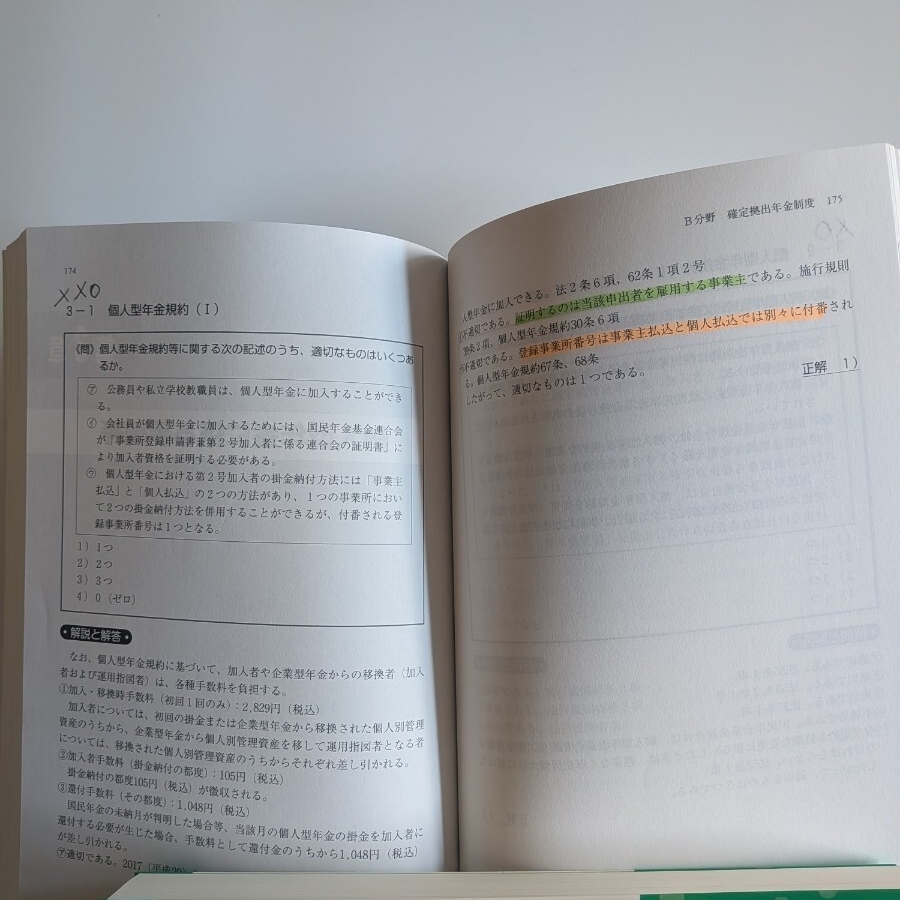 174
××○
3－1 個人型年金規約（Ⅰ）
《問》個人型年金規約等に関する次の記述のうち、適切なものはいくつあ
るか。
㋐ 公務員や私立学校教職員は、個人型年金に加入することができ
る。
㋑ 会社員が個人型年金に加入するためには、国民年金基金連合会
が「事業所登録申請書兼第2号加入者に係る連合会の証明書」に
より加入者資格を証明する必要がある。
㋒ 個人型年金における第2号加入者の掛金納付方法には「事業主
払込」と「個人払込」の2つの方法があり、1つの事業所におい
て2つの掛金納付方法を併用することができるが、付番される登
録事業所番号は1つとなる。
1）1つ
2）2つ
3）3つ
4）0（ゼロ）
・解説と解答・
なお、個人型年金規約に基づいて、加入者や企業型年金からの移換者（加入
者および運用指図者）は、各種手数料を負担する。
①加入・移換時手数料（初回1回のみ）：2,829円（税込）
加入者については、初回の掛金または企業型年金から移換された個人別管理
資産のうちから、企業型年金から個人別管理資産を移して運用指図者となる者
については、移換された個人別管理資産のうちからそれぞれ差し引かれる。
②加入者手数料（掛金納付の都度）：105円（税込）
掛金納付の都度105円（税込）が徴収される。
③還付手数料（その都度）：1,048円（税込）
国民年金の未納月が判明した場合等、当該月の個人型年金の掛金を加入者に
還付する必要が生じた場合、手数料として還付金のうちから1,048円（税込）
が差し引かれる。
㋐適切である。2017（平成
B分野 確定拠出年金制度 175
人型年金に加入できる。法2条6項，62条1項2号
不適切である。証明するのは当該申出者を雇用する事業主である。施行規則
39条2項，個人型年金規約30条6項
不適切である。登録事業所番号は事業主払込と個人払込では別々に付番され
る。個人型年金規約67条、68条
したがって、適切なものは1つである。
正解 1）